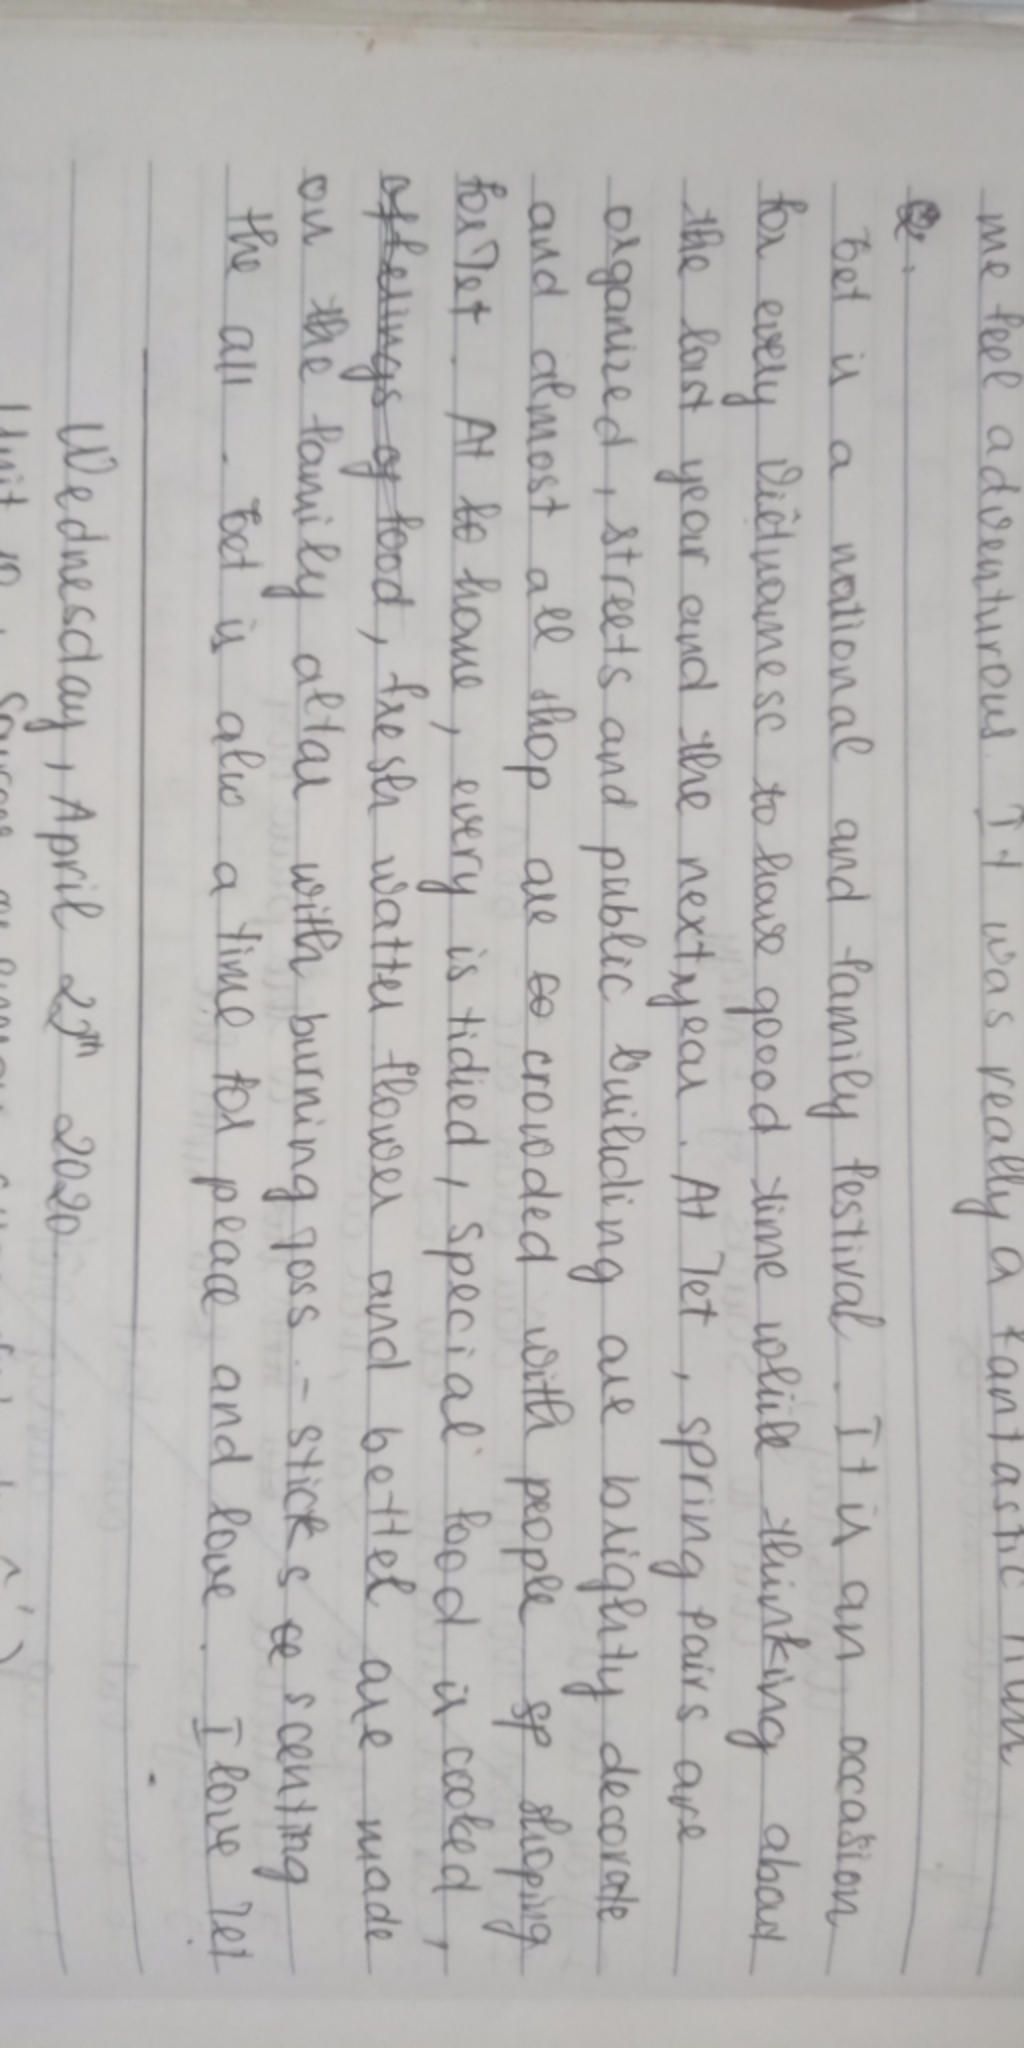 me feel adventurous. It was really a fantastic
2.
Tet is a national and family festival. It is an occasion
for every Viêtnamese to have good time while thinking abaut
the last year and the next year. At Tet, spring fairs are
organized, streets and public builiding are brighty decorate
and almost all shop are so crowded with people sp shoping
for Tet. At to home, every is tidied, special food is cooked,
offerings of food, fresh watter flower and bettel are made
on the family altar with burning joss - sticks sc scenting
the air. Tet is also a time for peace and love. I love Tet
Wednesday, April 2th 2020
Unit 10: Sources